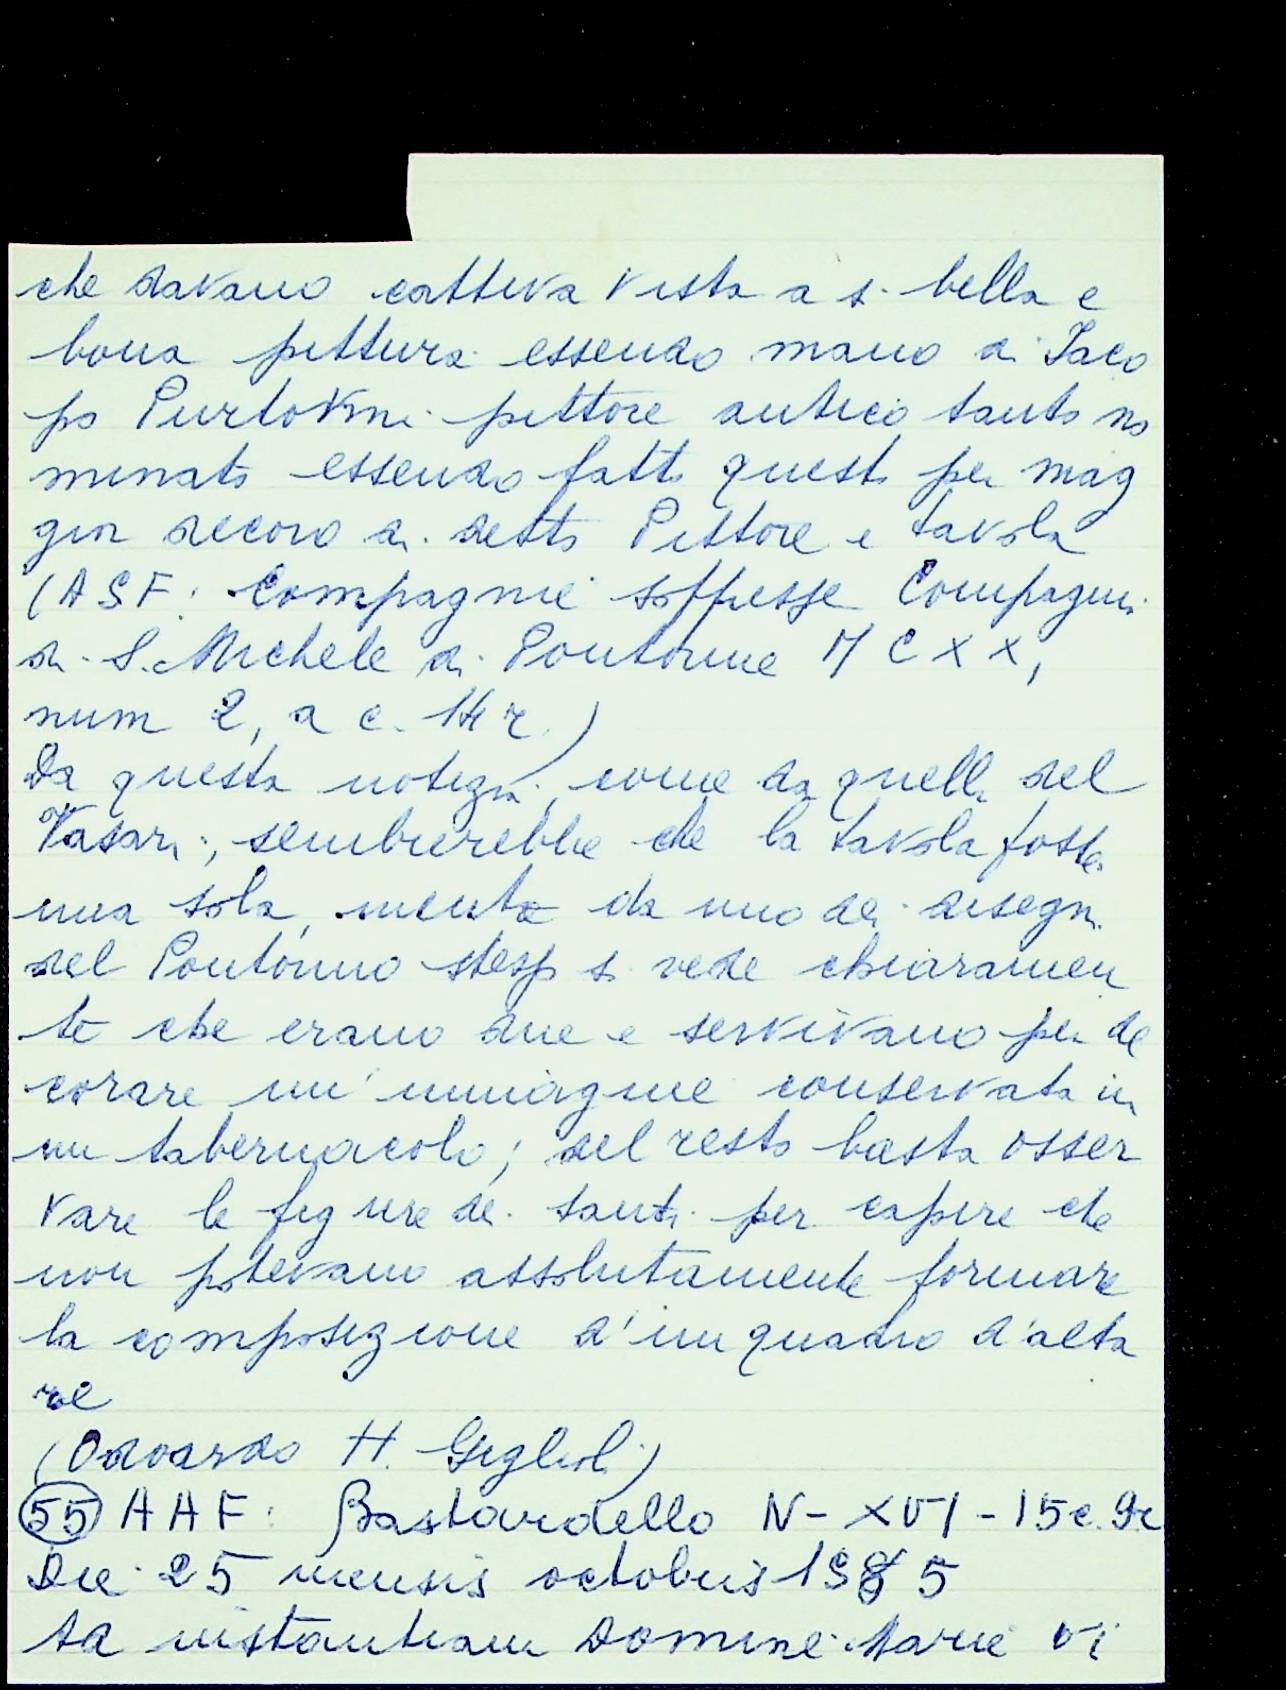 che davano cattiva vista a sì bella e
bona pittura essendo mano di Jaco
po Puntormi pittore antico tanto no
minato essendo fatto questo per mag
gior decoro di detto Pittore e tavola
(ASF: Compagnie soppresse Compagnia
di S. Michele di Pontorme M C X X,
num 2, a c. 14 r.)
Da questa notizia, come da quella del
Vasari, sembrerebbe che la tavola fosse
una sola, mentre da uno dei disegni
del Pontormo stesso si vede chiaramen
te che erano due e servivano per de
corare un'immagine conservata in
un tabernacolo; del resto basta osser
vare le figure dei santi per capire che
non potevano assolutamente formare
la composizione d'un quadro d'alta
re
(Odoardo H. Giglioli)
55 AAF: Bastardello N - XVI - 15 c. 9r
Die 25 mensis octobris 1585
Ad instantiam Domine Marie Vi